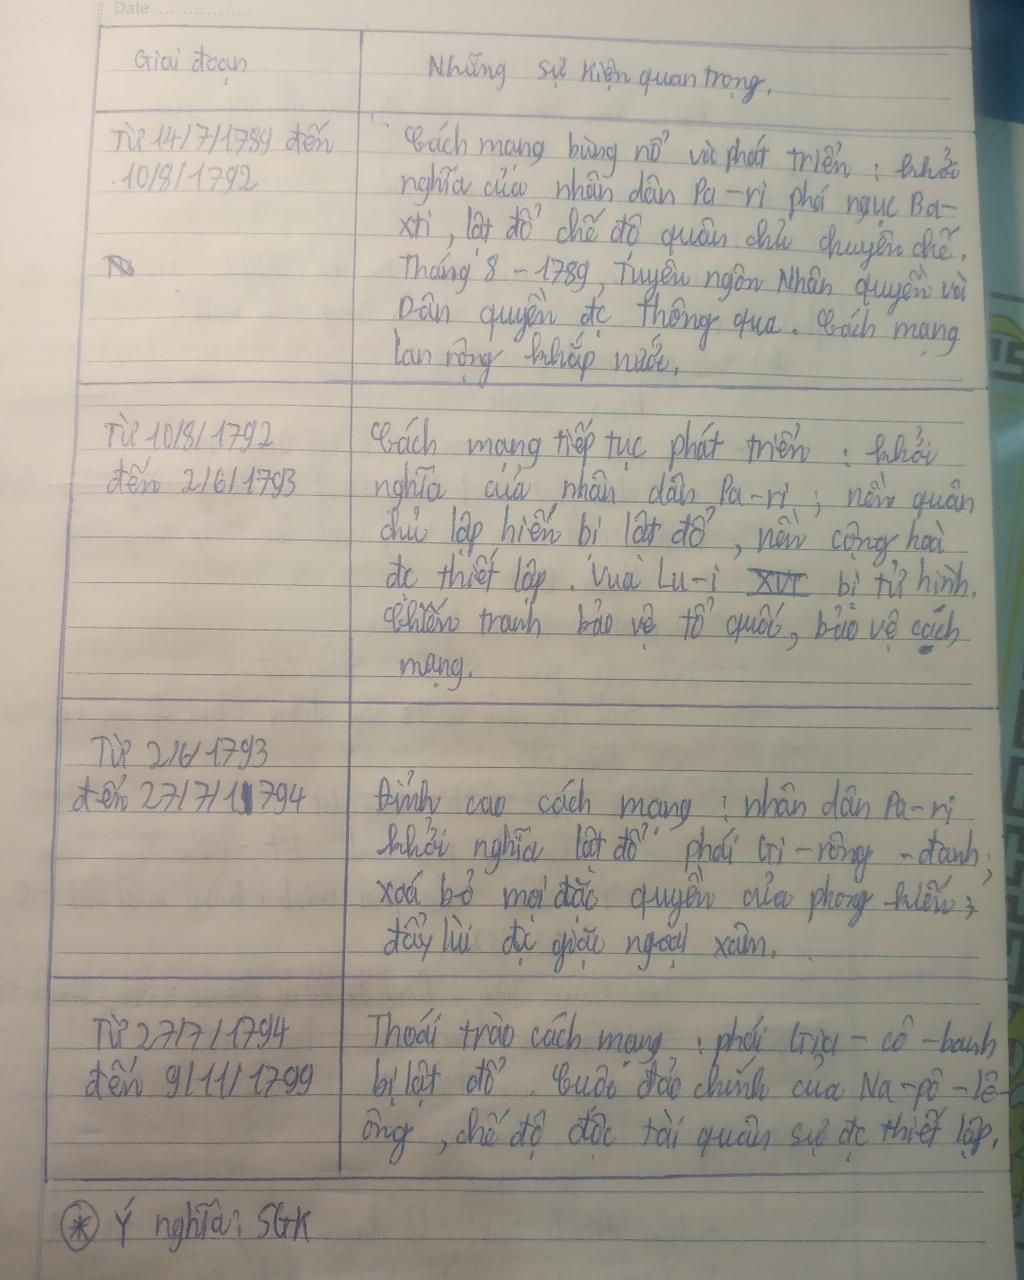 Date
Giai đoạn
Những sự kiện quan trọng.
Từ 14/7/1789 đến
10/8/1792
Cách mạng bùng nổ và phát triển : khởi
nghĩa của nhân dân Pa-ri phá ngục Ba-
xti, lật đổ chế độ quân chủ chuyên chế.
Tháng 8 - 1789, Tuyên ngôn Nhân quyền và
Dân quyền đc thông qua. Cách mạng
lan rộng khắp nước.
Từ 10/8/1792
đến 2/6/1793
Cách mạng tiếp tục phát triển : khởi
nghĩa của nhân dân Pa-ri ; nền quân
chủ lập hiến bị lật đổ, nền cộng hoà
đc thiết lập. Vua Lu-i XVI bị tử hình.
Chiến tranh bảo vệ tổ quốc, bảo vệ cách
mạng.
Từ 2/6/1793
đến 27/7/1794
Đỉnh cao cách mạng : nhân dân Pa-ri
khởi nghĩa lật đổ phái Gi-rông-đanh;
xoá bỏ mọi đặc quyền của phong kiến;
đẩy lùi đc giặc ngoại xâm.
Từ 27/7/1794
đến 9/11/1799
Thoái trào cách mạng : phái Gia-cô-banh
bị lật đổ. Cuộc đảo chính của Na-pô-lê-
ông, chế độ độc tài quân sự đc thiết lập.
* Ý nghĩa: SGK